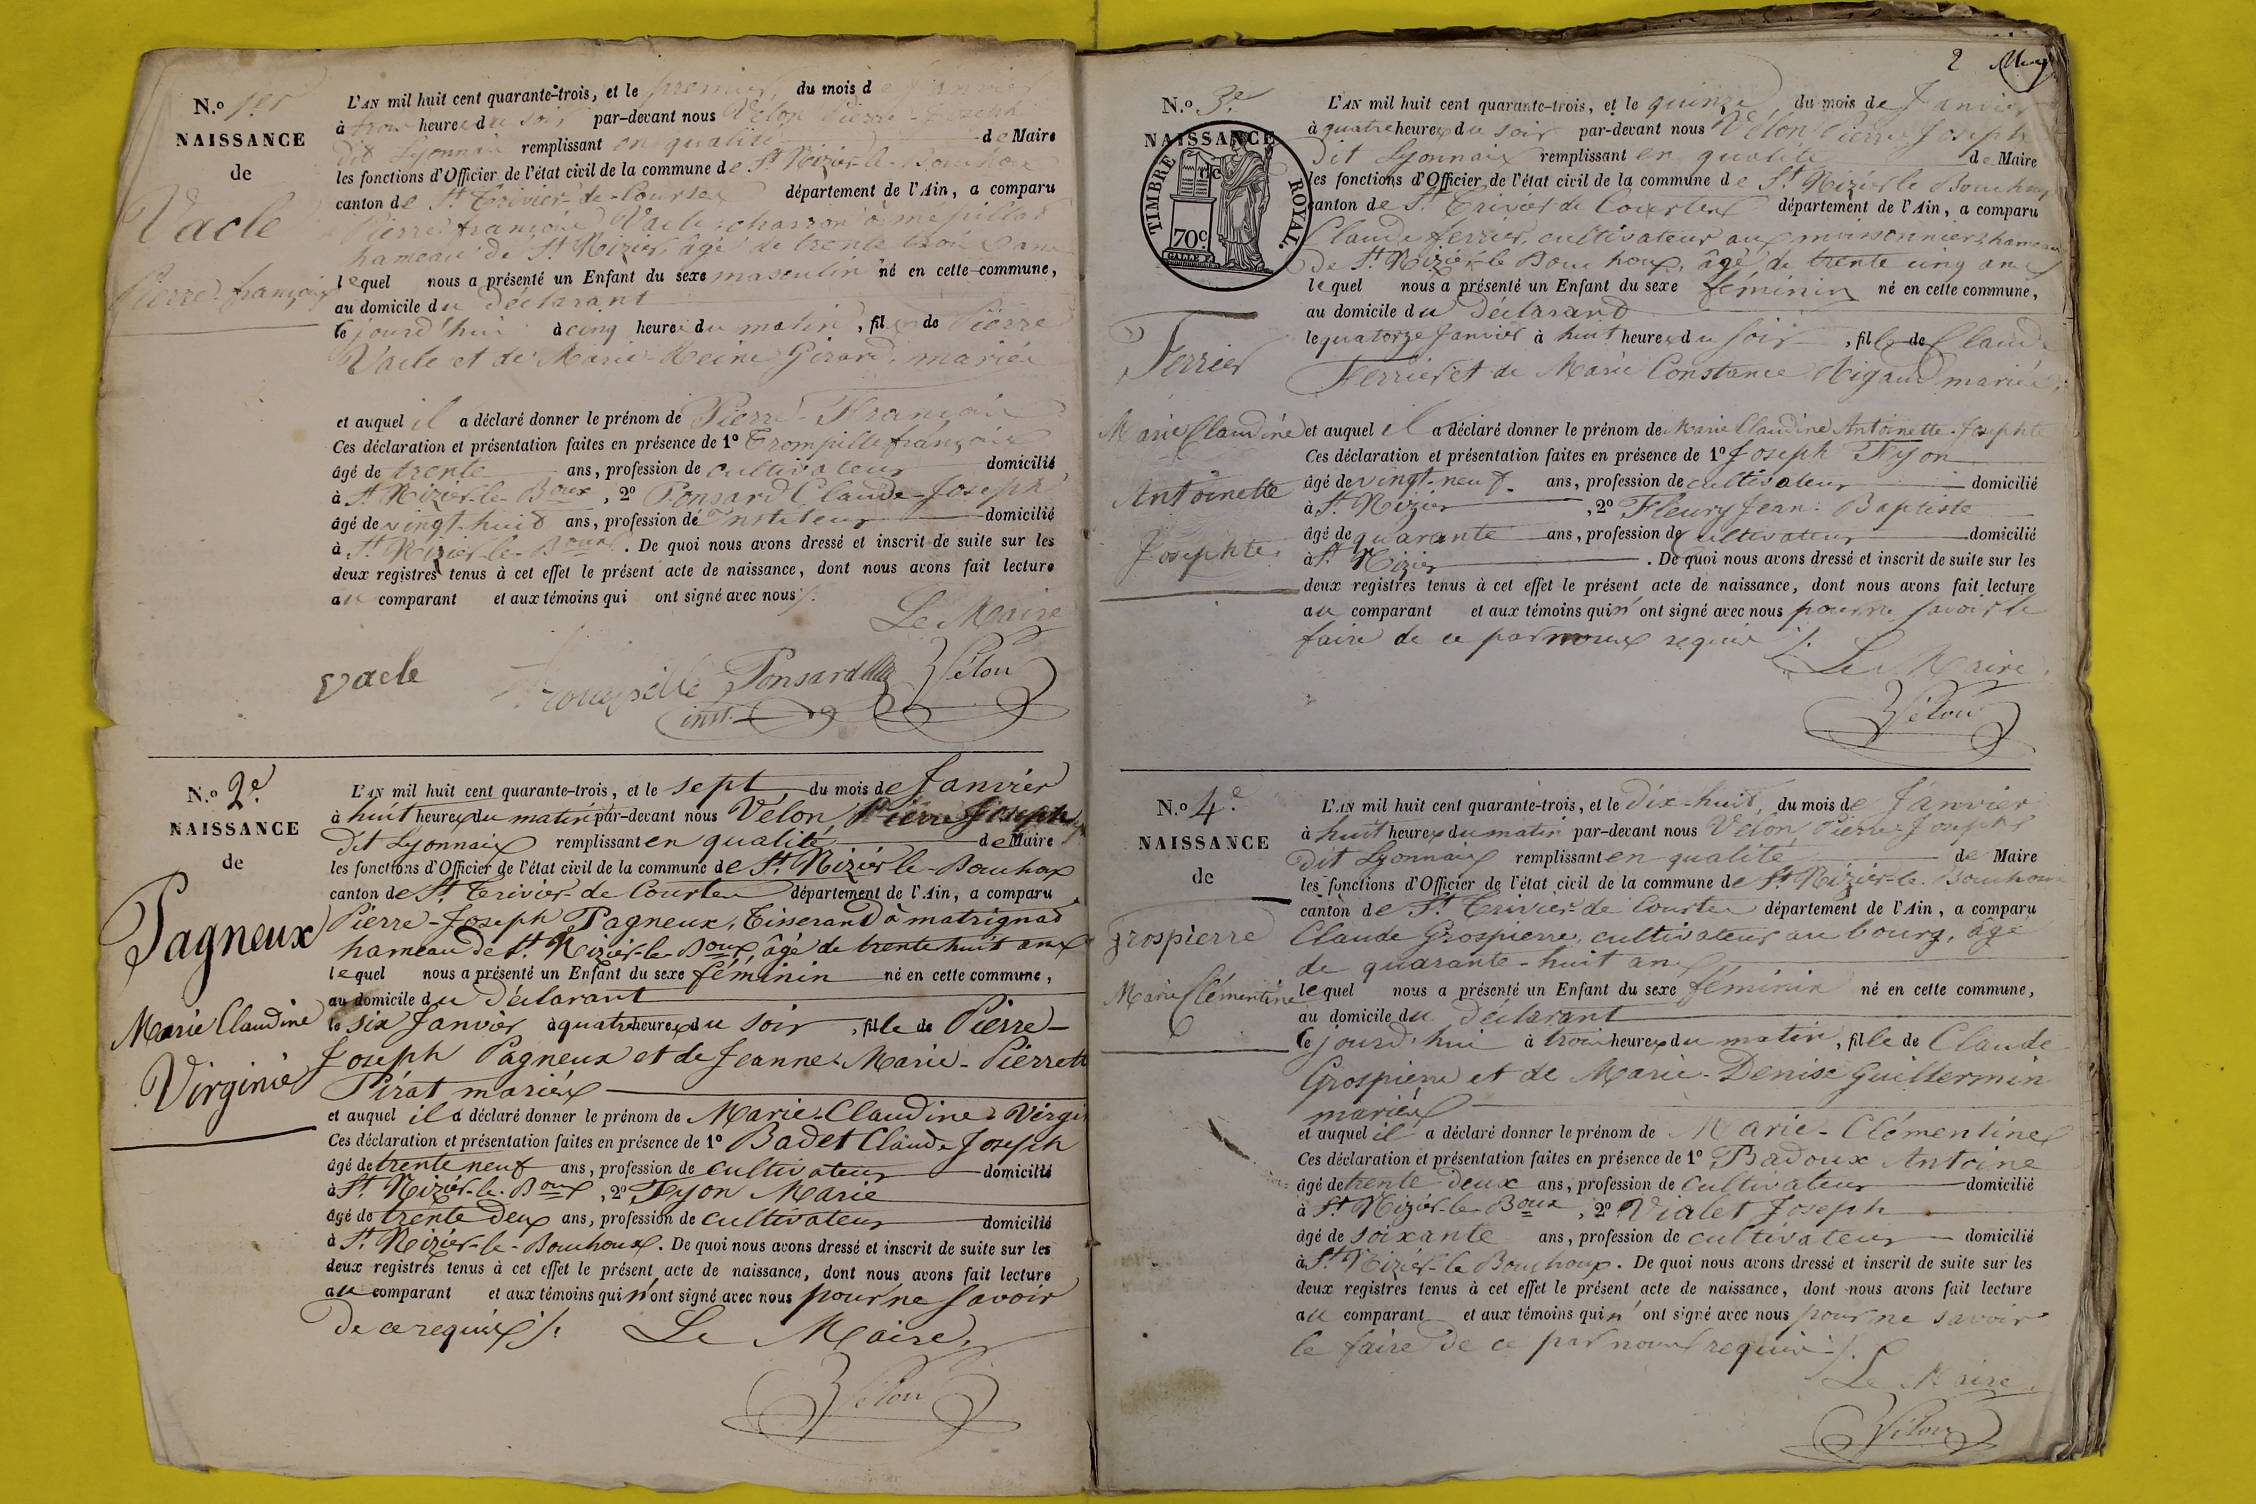 N.º 1er
NAISSANCE
de
Vacle
Pierre françois
L'AN mil huit cent quarante-trois, et le premier du mois de Janvier
à trois heures du soir par-devant nous Vélon Pierre-Joseph
dit Lyonnais remplissant en qualité de Maire
les fonctions d'Officier de l'état civil de la commune de St Nizier-le-Bouchoux
canton de St Trivier-de-Courtes département de l'Ain, a comparu
Pierre françois Vacle, charron à
hameau de St Nizier, âgé de trente trois ans
lequel nous a présenté un Enfant du sexe masculin né en cette commune,
au domicile du déclarant
le jourd'hui à cinq heures du matin, fils de Pierre
Vacle et de Marie-Reine Girard, mariés
et auquel il a déclaré donner le prénom de Pierre-François
Ces déclaration et présentation faites en présence de 1º Trompille françois
âgé de trente ans, profession de cultivateur domicilié
à St Nizier-le-Boux, 2º Ponsard Claude-Joseph
âgé de vingt-huit ans, profession de Instituteur domicilié
à St Nizier-le-Boux. De quoi nous avons dressé et inscrit de suite sur les
deux registres tenus à cet effet le présent acte de naissance, dont nous avons fait lecture
au comparant et aux témoins qui ont signé avec nous ./.
Le Maire
Vacle Trompille Ponsard Vélon
inst.
N.º 2e
NAISSANCE
de
Pagneux
Marie Claudine
Virginie
L'AN mil huit cent quarante-trois, et le sept du mois de Janvier
à huit heures du matin par-devant nous Vélon Pierre Joseph
dit Lyonnais remplissant en qualité de Maire
les fonctions d'Officier de l'état civil de la commune de St Nizier-le-Bouhoux
canton de St Trivier-de Courtes département de l'Ain, a comparu
Pierre-Joseph Pagneux, Tisserand à matrignad
hameau de St Nizier-le-Boux, âgé de trente huit ans
lequel nous a présenté un Enfant du sexe féminin né en cette commune,
au domicile du déclarant
le six Janvier à quatre heures du soir, fille de Pierre-
Joseph Pagneux et de Jeanne-Marie-Pierrette
Pirat mariés
et auquel il a déclaré donner le prénom de Marie-Claudine-Virgi
Ces déclaration et présentation faites en présence de 1º Badet Claude Joseph
âgé de trente neuf ans, profession de cultivateur domicilié
à St Nizier-le-Boux, 2º Fyon Marie
âgé de trente deux ans, profession de cultivateur domicilié
à St Nizier-le-Bouhoux. De quoi nous avons dressé et inscrit de suite sur les
deux registres tenus à cet effet le présent acte de naissance, dont nous avons fait lecture
au comparant et aux témoins qui n'ont signé avec nous pour ne savoir
de ce requis ./. Le Maire,
Vélon
2
N.º 3e
NAISSANCE
de
TIMBRE ROYAL.
70c
Ferrier
Marie Claudine
Antoinette
Josephte
L'AN mil huit cent quarante-trois, et le quinze du mois de Janvier
à quatre heures du soir par-devant nous Vélon Pierre Joseph
dit Lyonnais remplissant en qualité de Maire
les fonctions d'Officier de l'état civil de la commune de St Nizier le Bouchoux
canton de St Trivier de Courtes département de l'Ain, a comparu
Claude ferrier, cultivateur aux moissonniers hameau
de St Nizier-le Bouhoux, âgé de trente cinq ans
lequel nous a présenté un Enfant du sexe féminin né en cette commune,
au domicile du déclarant
le quatorze Janvier à huit heures du soir, fille de Claude
Ferrier et de Marie Constance Rigaud mariés,
et auquel il a déclaré donner le prénom de Marie Claudine Antoinette-Josephte
Ces déclaration et présentation faites en présence de 1º Joseph Fyon
âgé de vingt-neuf ans, profession de cultivateur domicilié
à St Nizier, 2º Fleury Jean-Baptiste
âgé de quarante ans, profession de cultivateur domicilié
à St Nizier. De quoi nous avons dressé et inscrit de suite sur les
deux registres tenus à cet effet le présent acte de naissance, dont nous avons fait lecture
au comparant et aux témoins qui n'ont signé avec nous pour ne savoir le
faire de ce par nous requis ./.
Le Maire,
Vélon
N.º 4e
NAISSANCE
de
Grospierre
Marie Clémentine
L'AN mil huit cent quarante-trois, et le dix-huit, du mois de Janvier
à huit heures du matin par-devant nous Vélon Pierre-Joseph
dit Lyonnais remplissant en qualité de Maire
les fonctions d'Officier de l'état civil de la commune de St Nizier-le-Bouhoux
canton de St Trivier-de Courtes département de l'Ain, a comparu
Claude Grospierre, cultivateur au bourg, âgé
de quarante-huit ans
lequel nous a présenté un Enfant du sexe féminin né en cette commune,
au domicile du déclarant
le jourd'hui à trois heures du matin, fille de Claude
Grospierre et de Marie-Denise Guillermin
mariés
et auquel il a déclaré donner le prénom de Marie-Clémentine
Ces déclaration et présentation faites en présence de 1º Badoux Antoine
âgé de trente deux ans, profession de cultivateur domicilié
à St Nizier-le-Boux, 2º Violet Joseph
âgé de soixante ans, profession de cultivateur domicilié
à St Nizier-le Bouchoux. De quoi nous avons dressé et inscrit de suite sur les
deux registres tenus à cet effet le présent acte de naissance, dont nous avons fait lecture
au comparant et aux témoins qui n'ont signé avec nous pour ne savoir
le faire de ce par nous requis ./.
Le Maire,
Vélon